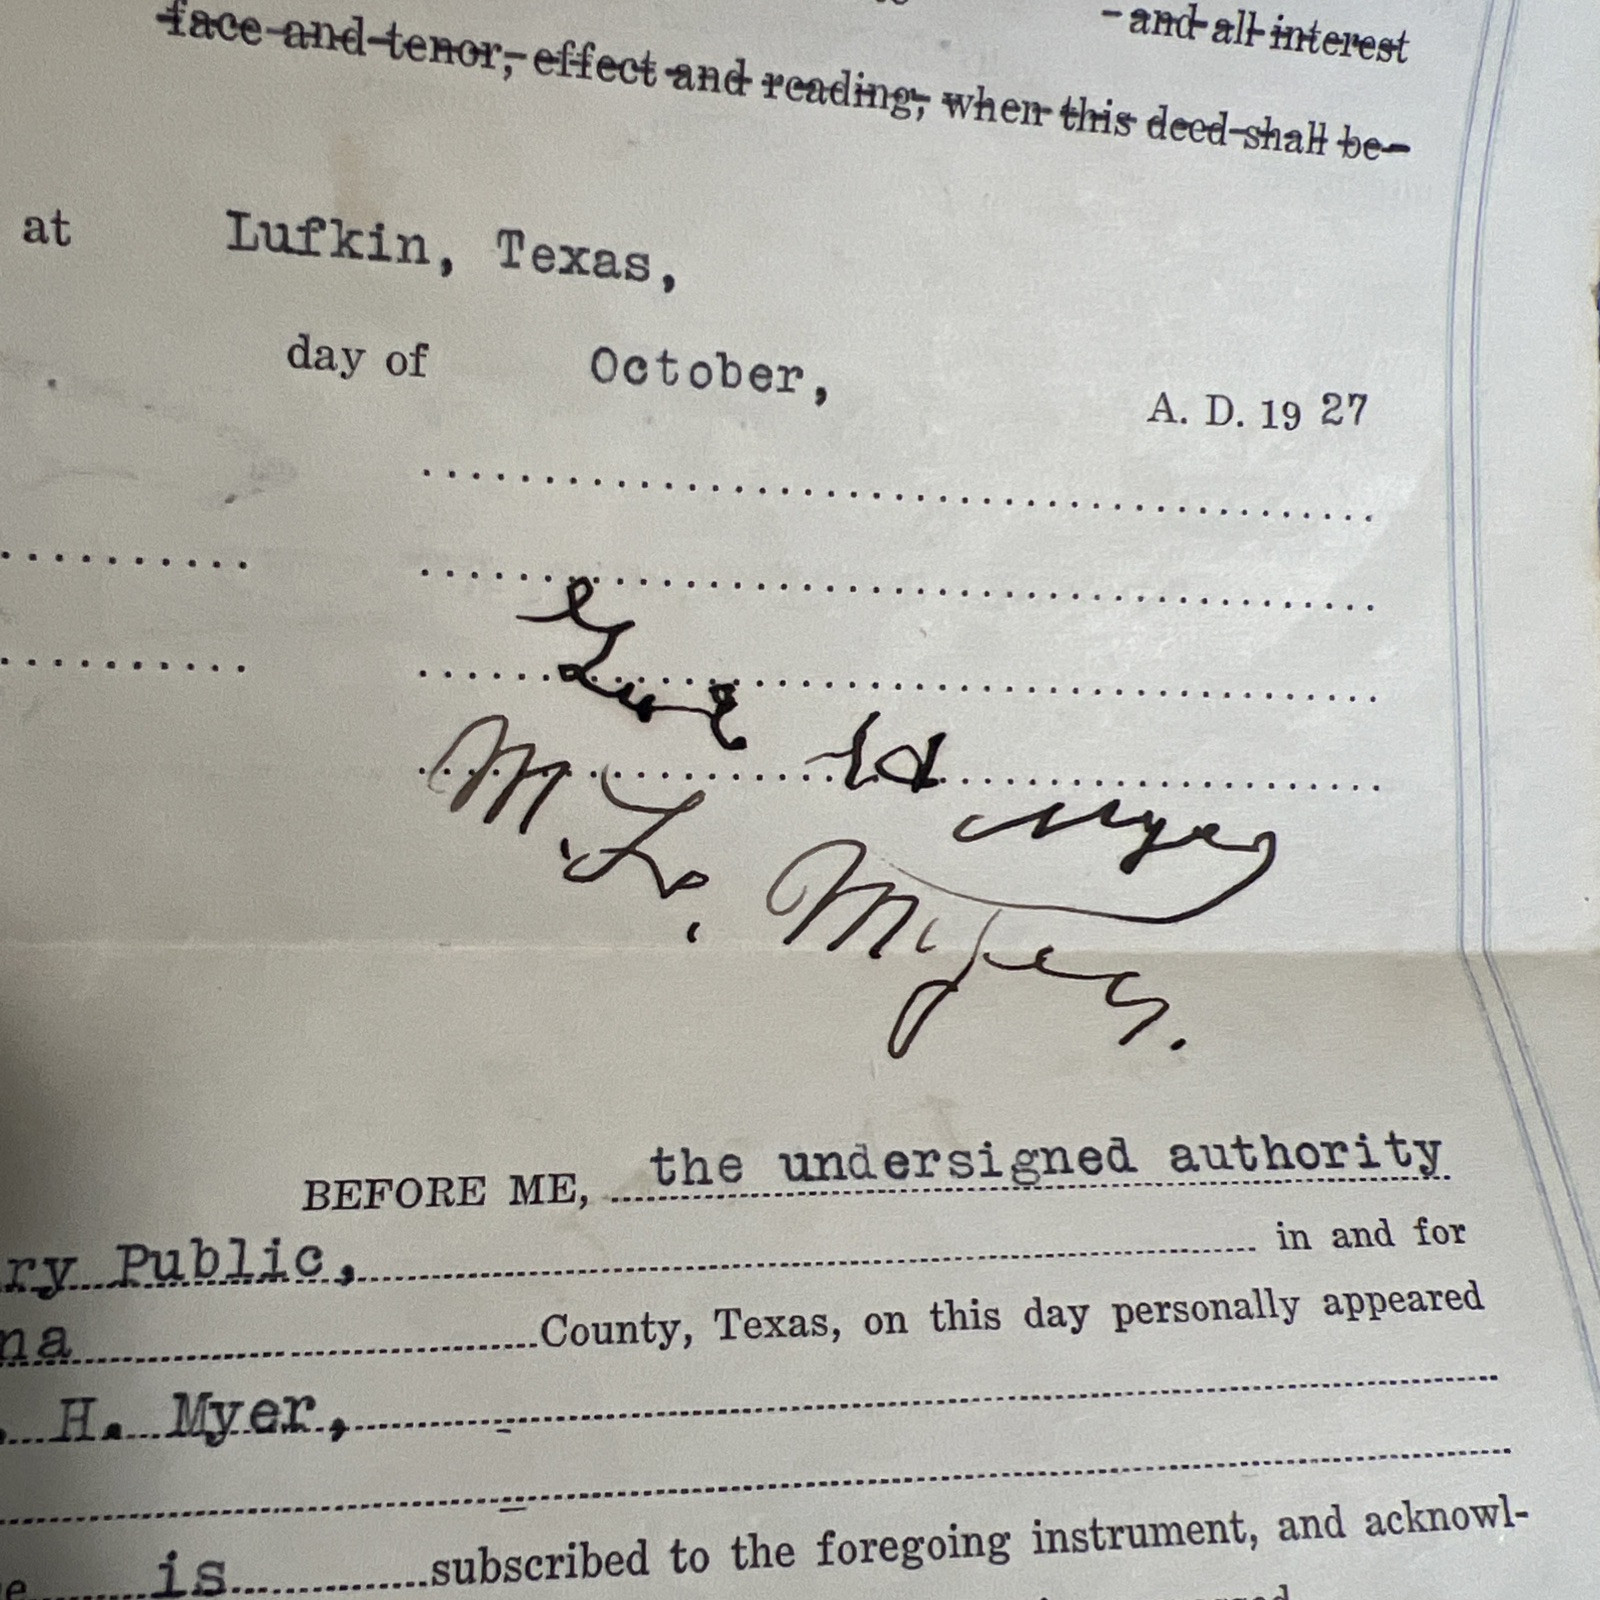 -and all interest
face and tenor, effect and reading, when this deed shall be
at Lufkin, Texas,
day of October, A. D. 19 27
Myer
M. L. Myers.
BEFORE ME, the undersigned authority
ry Public, in and for
na County, Texas, on this day personally appeared
. H. Myer,
is subscribed to the foregoing instrument, and acknowl-